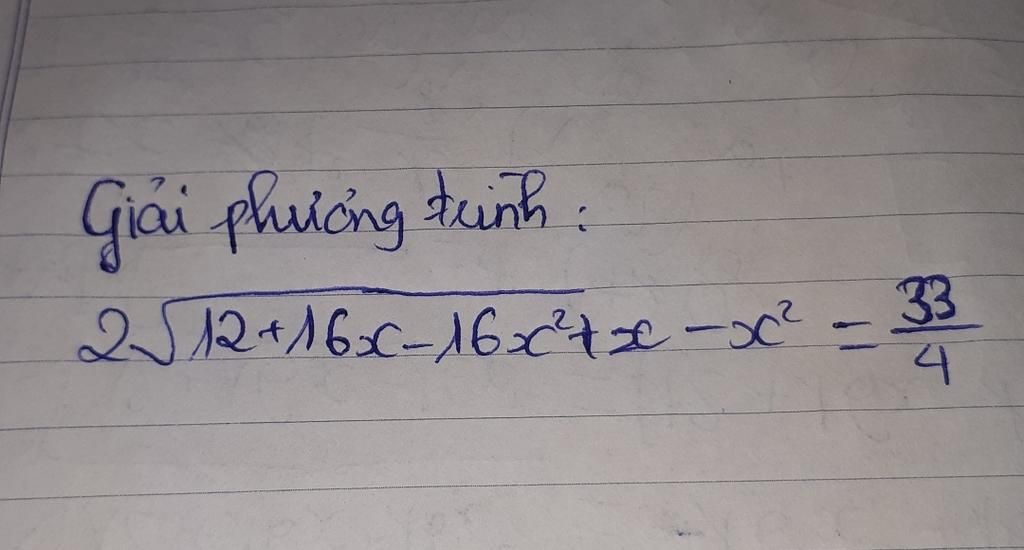 Giải phương trình :
2√12+16x-16x²+x-x² = 33/4